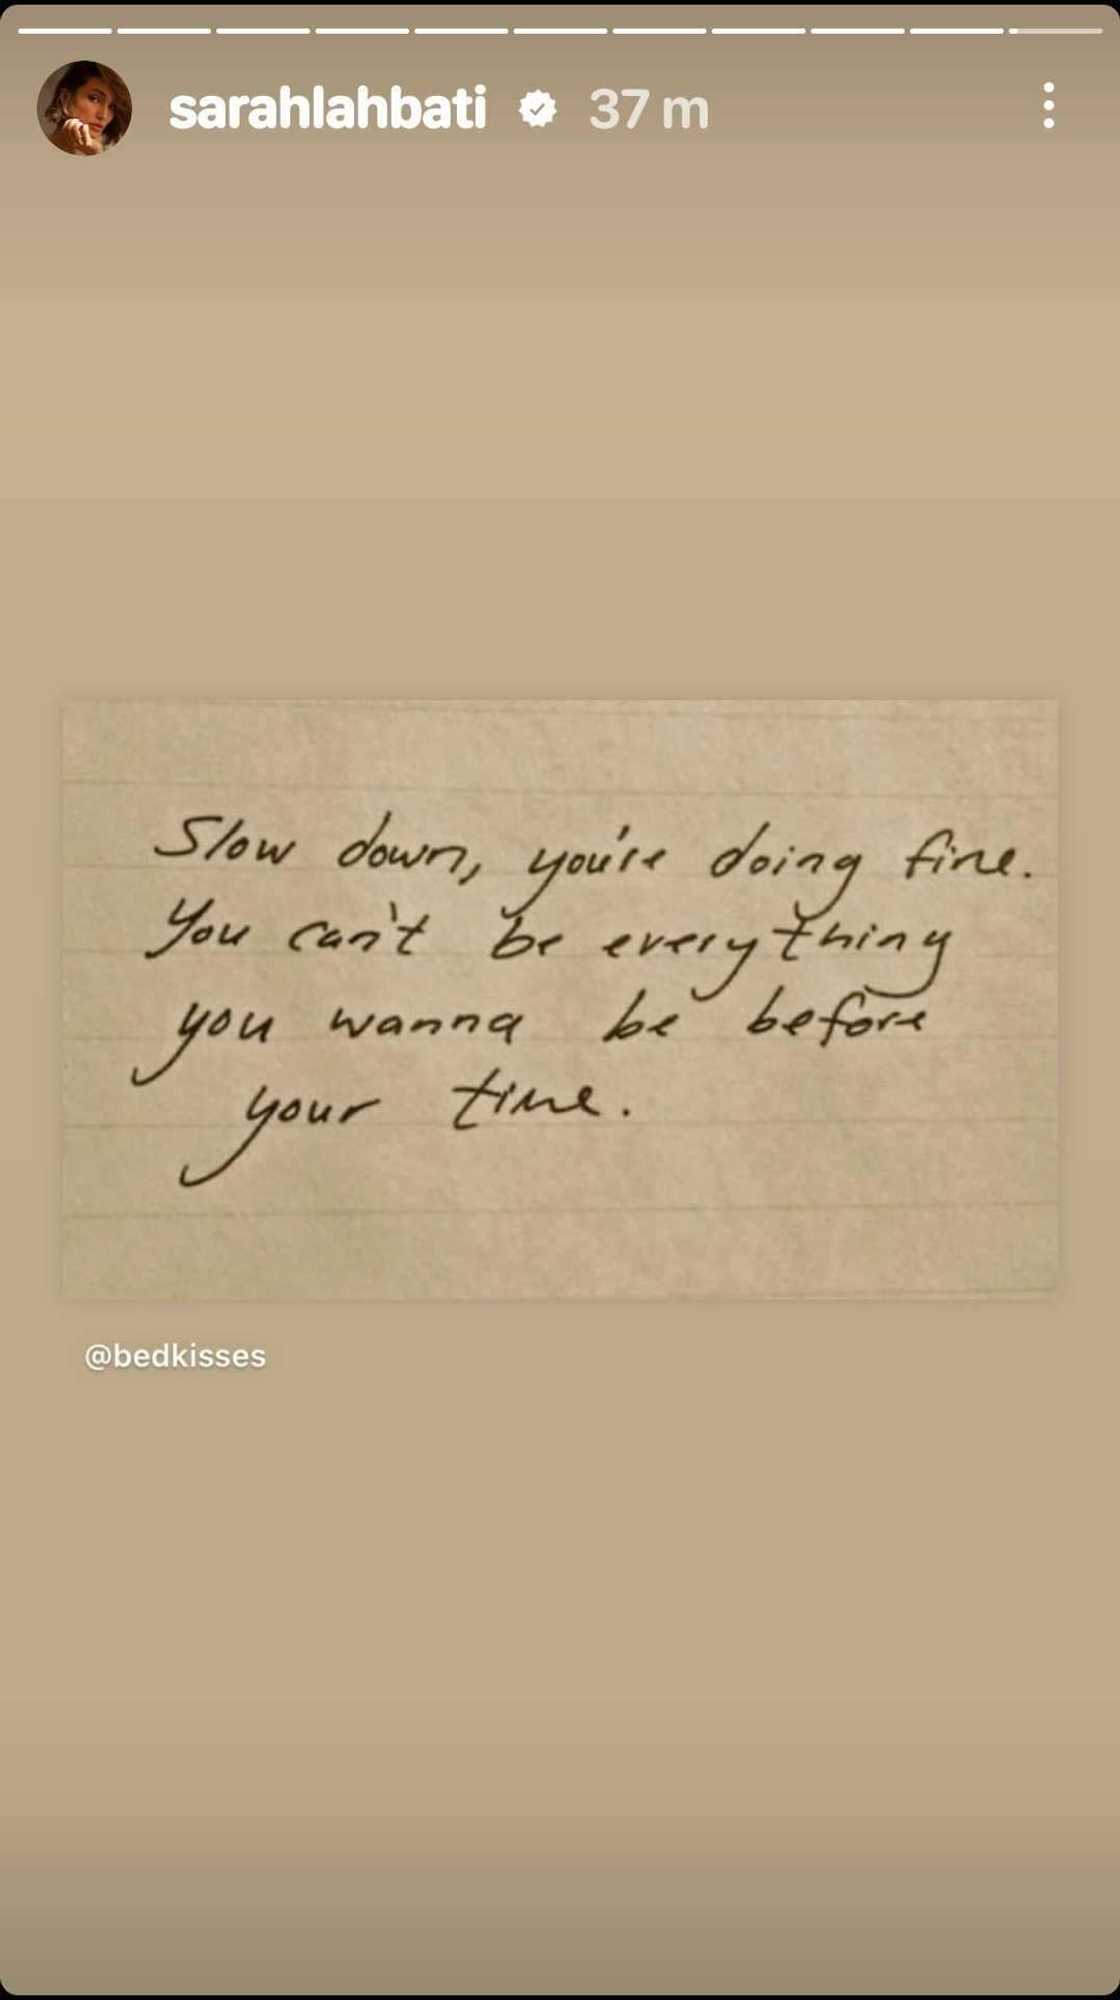 sarahlahbati 37 m
Slow down, you're doing fine.
You can't be everything
you wanna be before
your time.
@bedkisses